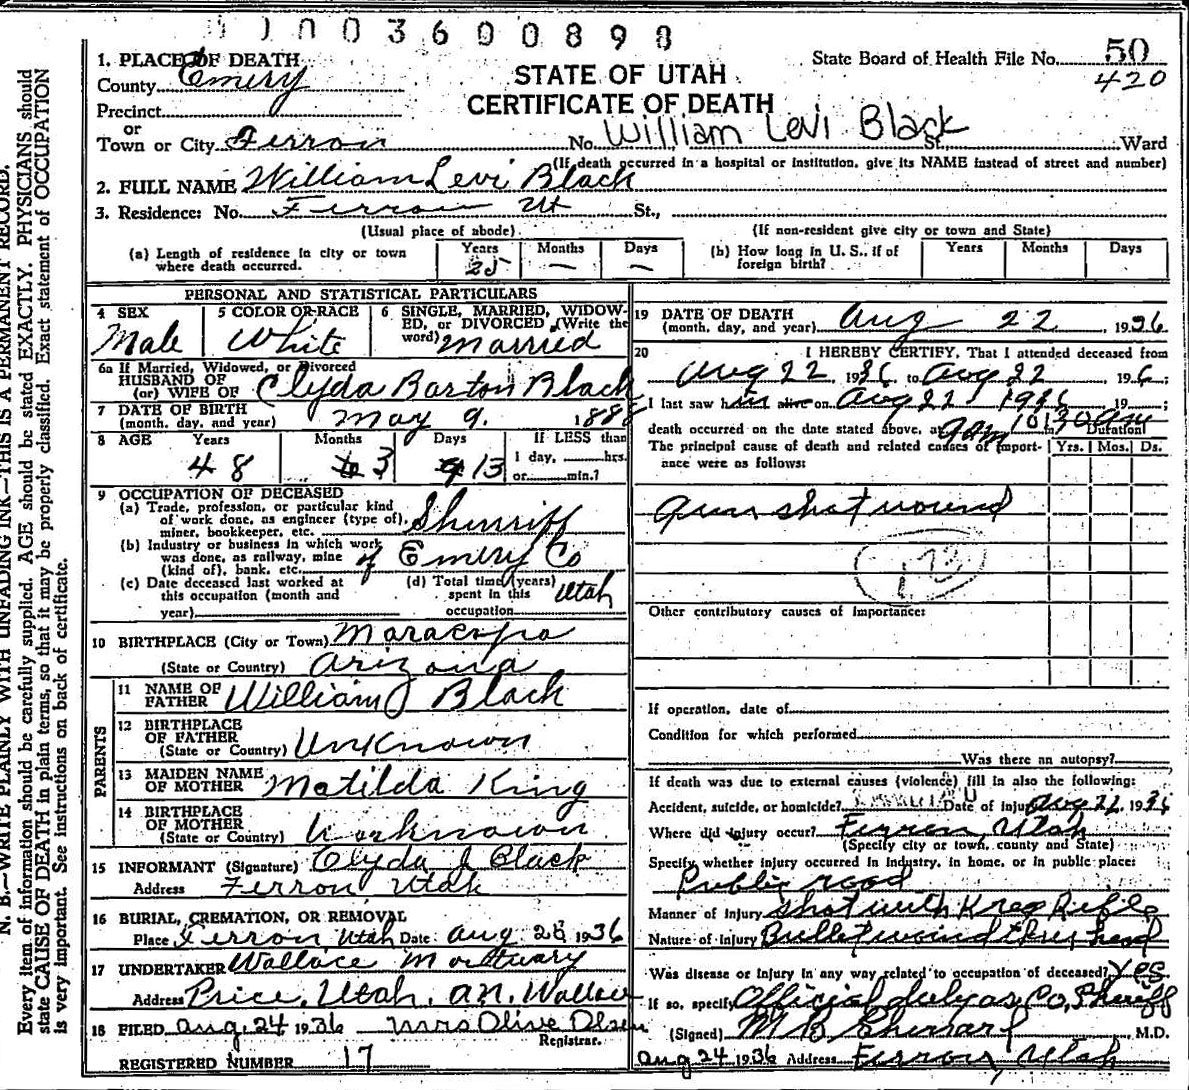 003600898
1. PLACE OF DEATH
County Emery
Precinct
or
Town or City Ferron
STATE OF UTAH
CERTIFICATE OF DEATH
State Board of Health File No. 50
420
No. William Levi Black St., Ward
(If death occurred in a hospital or institution, give its NAME instead of street and number)
2. FULL NAME William Levi Black
3. Residence: No. Ferron Ut St.,
(Usual place of abode) (If non-resident give city or town and State)
(a) Length of residence in city or town where death occurred. Years 25 Months — Days —
(b) How long in U. S., if of foreign birth? Years Months Days
PERSONAL AND STATISTICAL PARTICULARS
4 SEX Male
5 COLOR OR RACE White
6 SINGLE, MARRIED, WIDOWED, or DIVORCED (Write the word) Married
6a If Married, Widowed, or Divorced
HUSBAND OF
(or) WIFE OF Clyda Barton Black
7 DATE OF BIRTH
(month, day, and year) May 9. 1888
8 AGE Years 48 Months 3 Days 13 If LESS than 1 day, hrs. or min.?
9 OCCUPATION OF DECEASED
(a) Trade, profession, or particular kind of work done, as engineer (type of), miner, bookkeeper, etc. Sherriff
(b) Industry or business in which work was done, as railway, mine (kind of), bank, etc. of Emery Co
(c) Date deceased last worked at this occupation (month and year)
(d) Total time (years) spent in this occupation Utah
10 BIRTHPLACE (City or Town) Maracopa
(State or Country) Arizona
PARENTS
11 NAME OF FATHER William J Black
12 BIRTHPLACE OF FATHER
(State or Country) Unknown
13 MAIDEN NAME OF MOTHER Matilda King
14 BIRTHPLACE OF MOTHER
(State or Country) Unknown
15 INFORMANT (Signature) Clyda J Black
Address Ferron Utah
16 BURIAL, CREMATION, OR REMOVAL
Place Ferron, Utah Date Aug 26 1936
17 UNDERTAKER Wallace Mortuary
Address Price, Utah. A.N. Wallace
18 FILED Aug. 24 1936 Mrs Olive Olsen
Registrar.
REGISTERED NUMBER 17
19 DATE OF DEATH
(month, day, and year) Aug 22, 1936
20 I HEREBY CERTIFY, That I attended deceased from
Aug 22, 1936 to Aug 22 1936;
I last saw him alive on Aug 22 1936 19 ;
death occurred on the date stated above, at 9 am 10:30 am
Duration
The principal cause of death and related causes of importance were as follows: Yrs. Mos. Ds.
Gun shot wound
173
Other contributory causes of importance:
If operation, date of
Condition for which performed
Was there an autopsy?
If death was due to external causes (violence) fill in also the following:
Accident, suicide, or homicide? Date of injury Aug 22, 1936
Where did injury occur? Ferron, Utah
(Specify city or town, county and State)
Specify whether injury occurred in industry, in home, or in public place:
Public road
Manner of Injury shot with Kreg Rifle
Nature of Injury Bullet wound thru head
Was disease or injury in any way related to occupation of deceased? Yes
If so, specify Official duty as Co, Sheriff
(Signed) M.D.
Aug 24 1936 Address Ferron, Utah
N. B.—WRITE PLAINLY WITH UNFADING INK—THIS IS A PERMANENT RECORD.
Every item of information should be carefully supplied. AGE should be stated EXACTLY. PHYSICIANS should
state CAUSE OF DEATH in plain terms, so that it may be properly classified. Exact statement of OCCUPATION
is very important. See instructions on back of certificate.